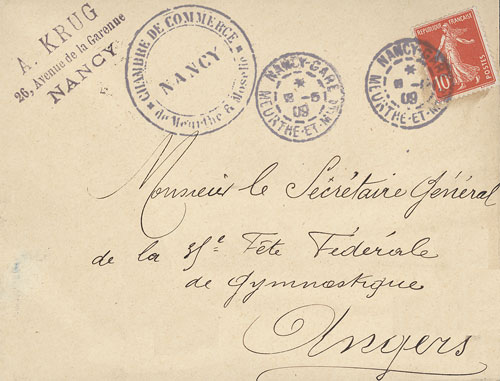 A. KRUG
26, Avenue de la Garenne
NANCY
CHAMBRE DE COMMERCE
NANCY
de Meurthe & Moselle
NANCY-GARE
09
MEURTHE-ET-M
NANCY-G
09
MEURTHE-ET-M
REPUBLIQUE FRANÇAISE
10
POSTES
Monsieur le Secrétaire Général
de la Fête Fédérale
de Gymnastique
Angers